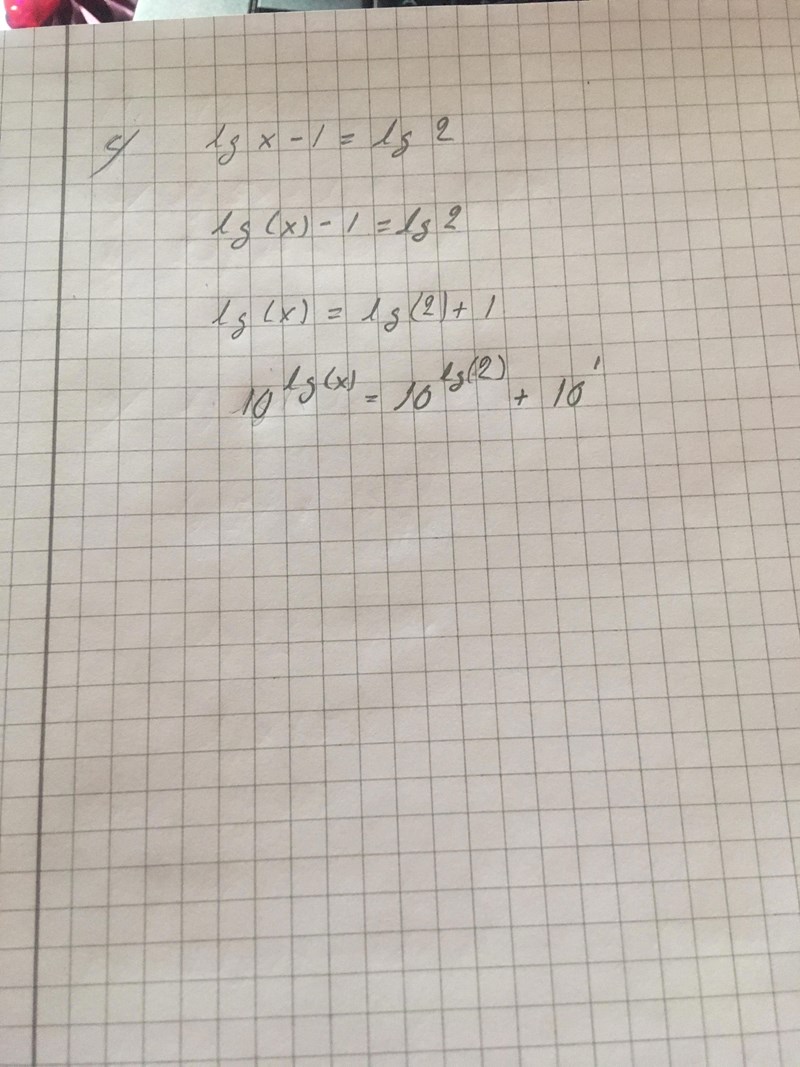 c) lg x - 1 = lg 2
lg (x) - 1 = lg 2
lg (x) = lg (2) + 1
10^lg(x) = 10^lg(2) + 10^1